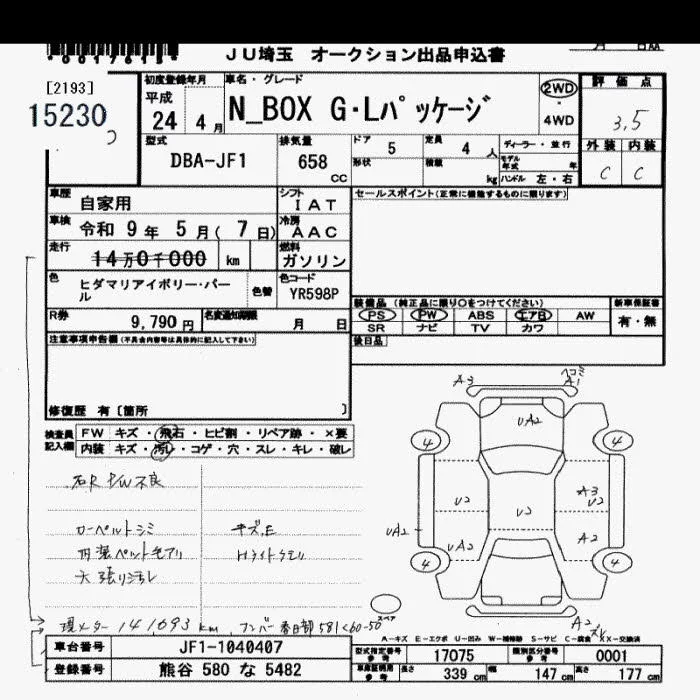 JU埼玉 オークション出品申込書
[2193]
15230
初度登録年月
平成
24 4 月
車名・グレード
N_BOX G・Lパッケージ
2WD
・
4WD
評価点
3.5
外装 内装
C C
型式
DBA-JF1
排気量
658
CC
ドア
5
定員
4 人
形状
積載
kg
ディーラー・並行
モデル年式 年
ハンドル 左・右
車歴
自家用
シフト
IAT
車検
令和 9 年 5 月( 7 日)
冷房
AAC
走行
14万0千000 km
燃料
ガソリン
色
ヒダマリアイボリー・パール
色替
色コード
YR598P
R券
9,790 円
名変通知期限
月 日
セールスポイント(正常に機能するものに限ります)
装備品 (純正品に限り○をつけてください)
PS PW ABS エアB AW
SR ナビ TV カワ
新車保証書
有・無
後日品
注意事項申告欄(不具合内容等は具体的に記入して下さい)
修復歴 有 [箇所 ]
検査員記入欄
FW キズ・飛石・ヒビ割・リペア跡・×要
内装 キズ・汚れ・コゲ・穴・スレ・キレ・破レ
右R P/W不良
カーペットシミ
キズ,E
内装ペット毛アリ
Hライトクモリ
天張り汚れ
現メーター 141,693 km
ナンバー 春日部 581 く 60-50
A3
ヘコミ
A1
UA2
4
4
U2
U2
A3
U2
UA2
UA2
A2
4
4
A2
スペア
A－キズ E－エクボ U－凹み W－補修跡 S－サビ C－腐食 XX－交換済
車台番号
JF1-1040407
登録番号
熊谷 580 な 5482
型式指定番号
参考
17075
類別区分番号
参考
0001
車庫証明用
参考
長さ
339 cm
幅
147 cm
高さ
177 cm